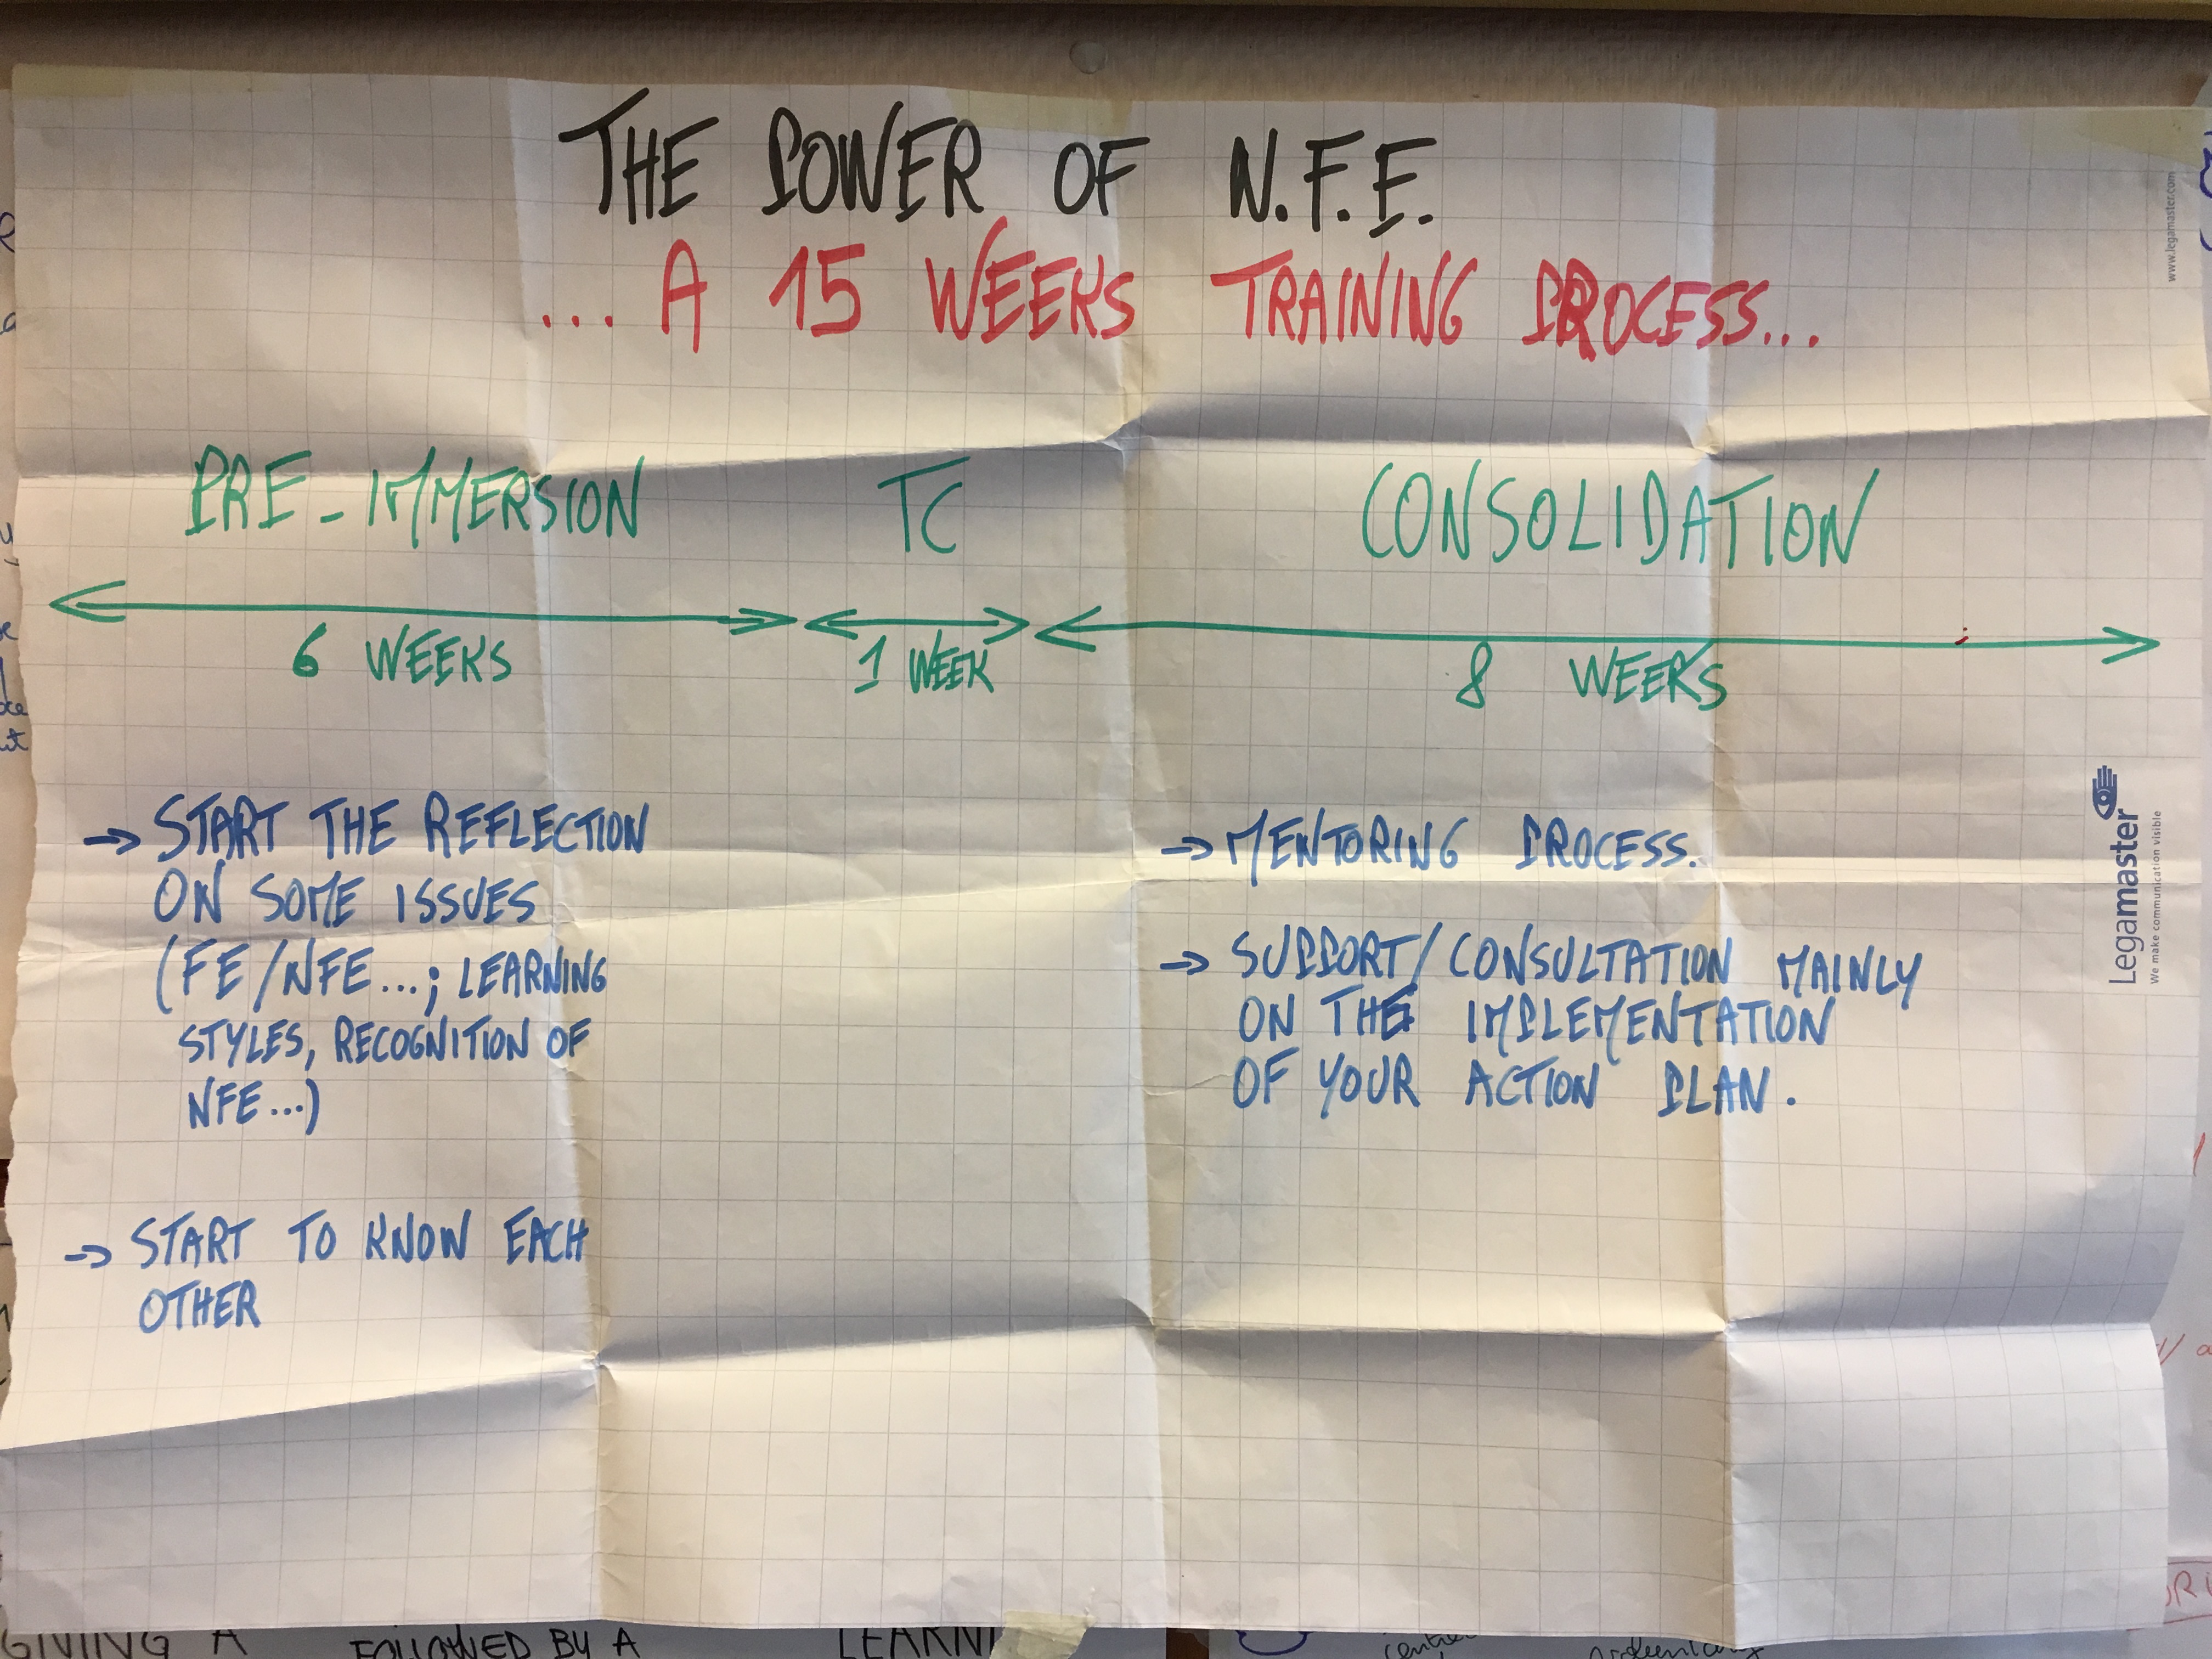 THE POWER OF N.F.E.
... A 15 WEEKS TRAINING PROCESS...
PRE-IMMERSION
TC
CONSOLIDATION
6 WEEKS
1 WEEK
8 WEEKS
→ START THE REFLECTION
ON SOME ISSUES
(FE/NFE...; LEARNING
STYLES, RECOGNITION OF
NFE...)
→ START TO KNOW EACH
OTHER
→ MENTORING PROCESS.
→ SUPPORT/CONSULTATION MAINLY
ON THE IMPLEMENTATION
OF YOUR ACTION PLAN.
www.legamaster.com
Legamaster
We make communication visible
GIVING A
FOLLOWED BY A